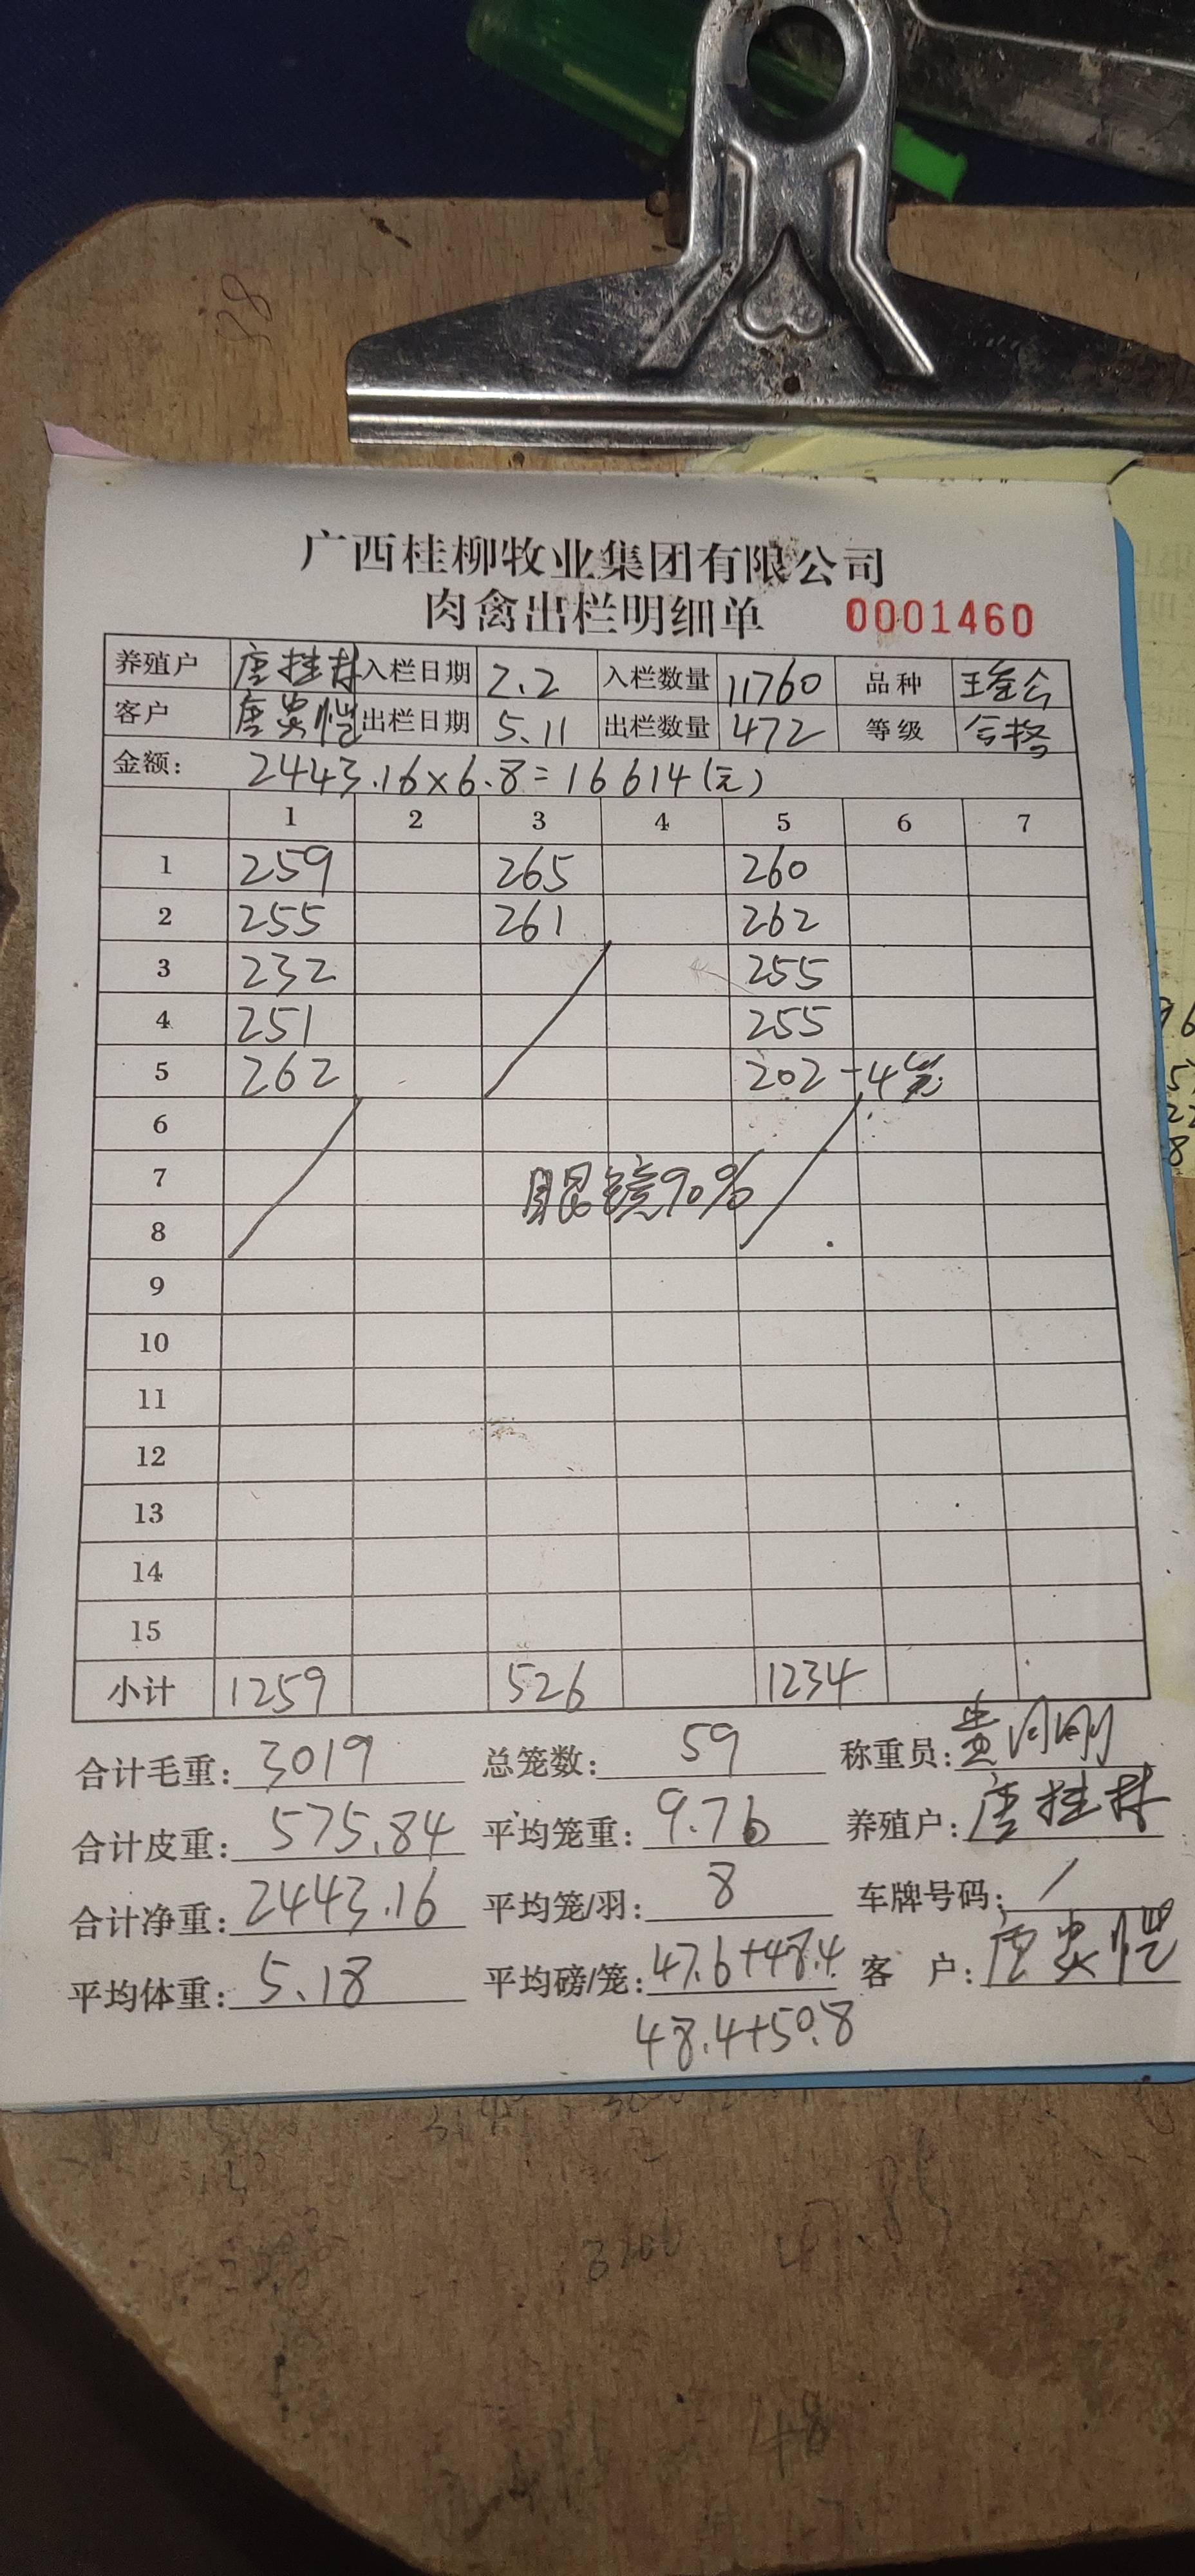 广西桂柳牧业集团有限公司
肉禽出栏明细单 0001460
养殖户 唐桂林 入栏日期 2.2 入栏数量 11760 品种
客户 唐 出栏日期 5.11 出栏数量 472 等级 合格
金额: 2443.16×6.8=16614(元)
1 2 3 4 5 6 7
1 259 265 260
2 255 261 262
3 232 255
4 251 255
5 262 202 -4笼
6
7 眼镜90%
8
9
10
11
12
13
14
15
小计 1259 526 1234
合计毛重: 3019 总笼数: 59 称重员:
合计皮重: 575.84 平均笼重: 9.76 养殖户: 唐桂林
合计净重: 2443.16 平均笼/羽: 8 车牌号码: /
平均体重: 5.18 平均磅/笼: 47.6+48.4 客户: 唐
48.4+50.8